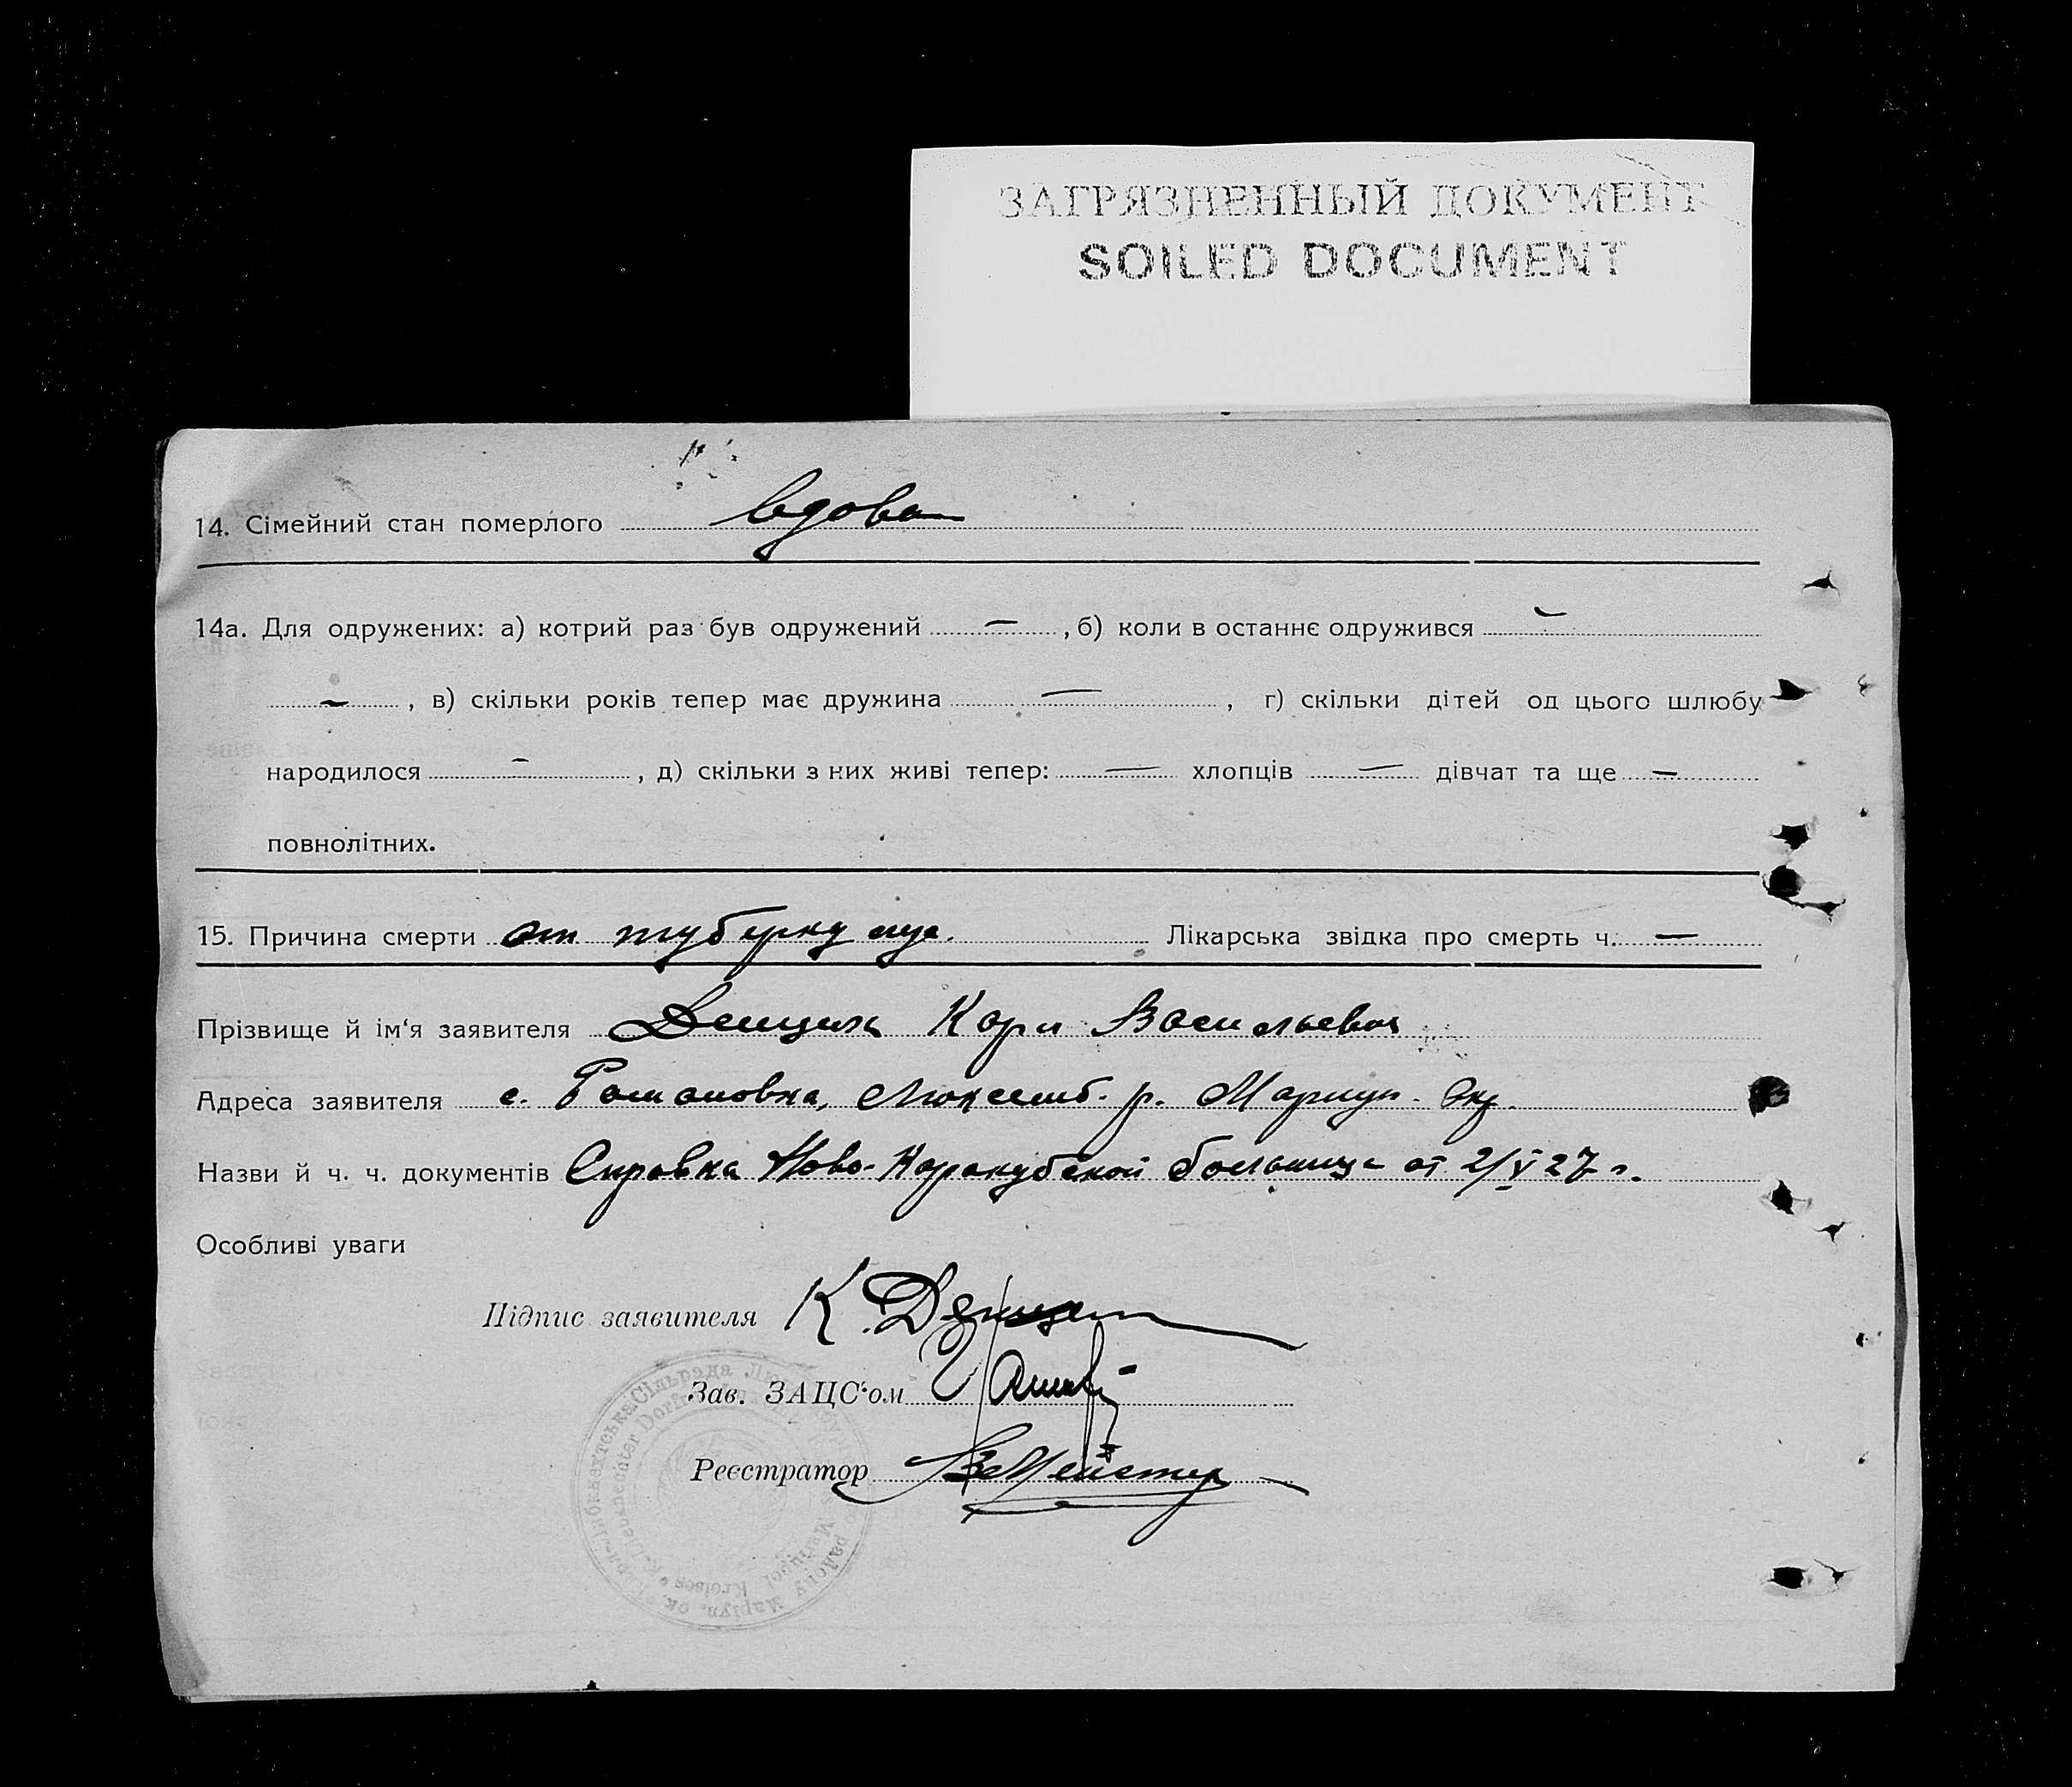 ЗАГРЯЗНЕННЫЙ ДОКУМЕНТ
SOILED DOCUMENT
14. Сімейний стан померлого вдова
14а. Для одружених: а) котрий раз був одружений — , б) коли в останнє одружився —
— , в) скільки років тепер має дружина — , г) скільки дітей од цього шлюбу
народилося — , д) скільки з них живі тепер: — хлопців — дівчат та ще —
повнолітних.
15. Причина смерти от туберкулус. Лікарська звідка про смерть ч. —
Прізвище й ім'я заявителя Карл Васильевич
Адреса заявителя с. Романовка, Люксемб. р. Мариуп. Окр.
Назви й ч. ч. документів Справка Ново-Каракубской больнице от 2/V 27 г.
Особливі уваги
Підпис заявителя К.
Зав. ЗАЦС'ом
Реєстратор
Карл-Лібкнехтська Сільрада району Маріуп. ок.
K-Liebknechter Dorfrat Mariupoler Kreises